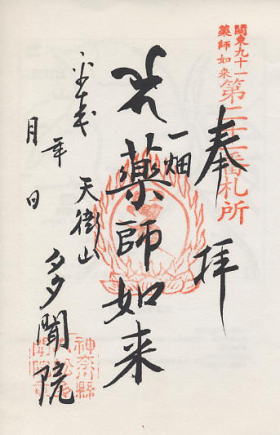 関東九十一
薬師如来
第二十二番札所
奉拝
一畑
薬師如来
平成
年
月
日
天衛山
多聞院
神奈縣